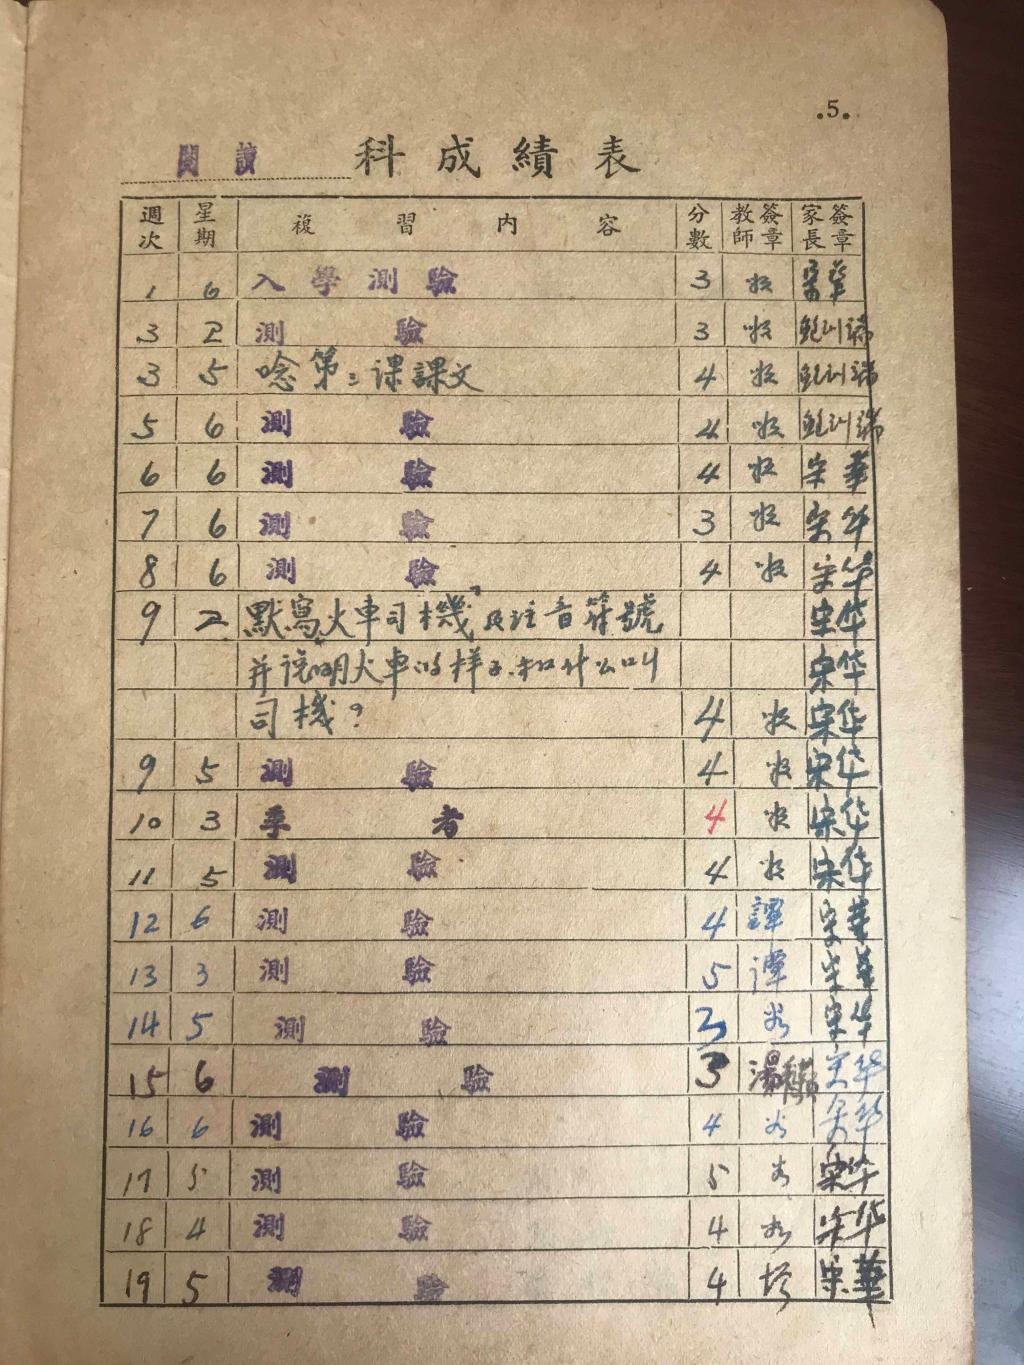 .5.
閱讀 科成績表
週次 星期 複習內容 分數 教師簽章 家長簽章
1 6 入學測驗 3 宋華
3 2 測驗 3
3 5 唸第三课課文 4
5 6 測驗 4
6 6 測驗 4 宋華
7 6 測驗 3 宋华
8 6 測驗 4 宋华
9 2 默寫火車司機及注音符號 宋华
并说明火車的样子.和什么叫 宋华
司機? 4 宋华
9 5 測驗 4 宋华
10 3 季考 4 宋华
11 5 測驗 4 宋华
12 6 測驗 4 譚 宋華
13 3 測驗 5 譚 宋華
14 5 測驗 3 宋华
15 6 測驗 3 湯 宋华
16 6 測驗 4 宋华
17 5 測驗 5 宋华
18 4 測驗 4 宋华
19 5 測驗 4 宋華